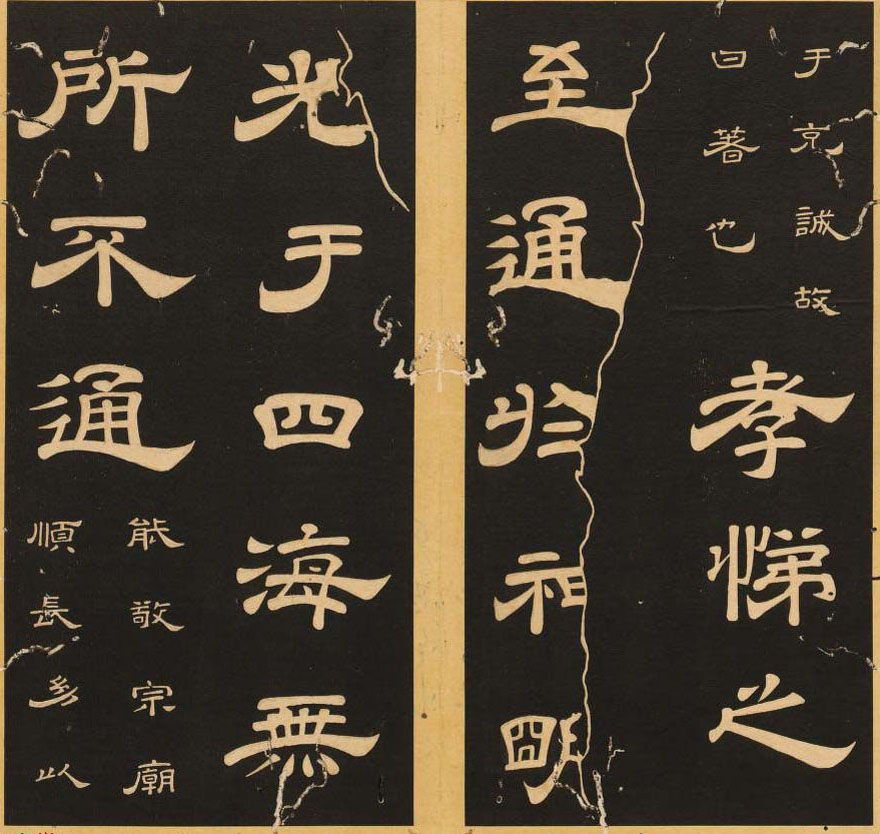 于克誠故
曰著也
孝悌之
至通於神明
光于四海無
所不通
能敬宗廟
順長幼以